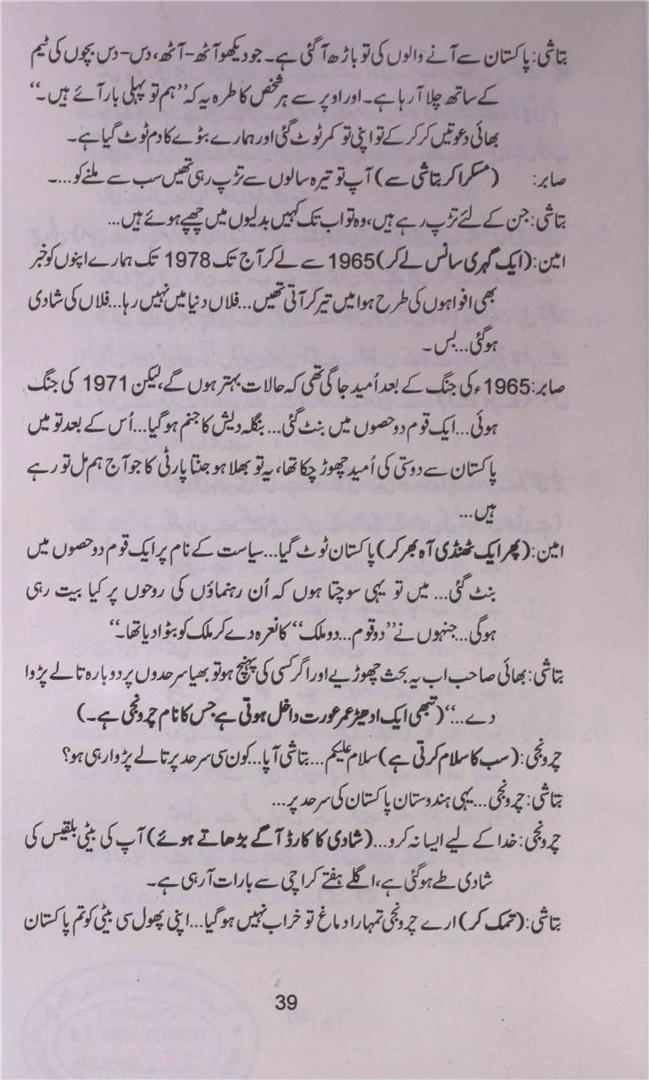 بتاشی: پاکستان سے آنے والوں کی تو باڑھ آ گئی ہے۔ جو دیکھو آٹھ-آٹھ، دس-دس بچوں کی ٹیم
کے ساتھ چلا آ رہا ہے۔ اور اوپر سے ہر شخص کا طرہ یہ کہ ”ہم تو پہلی بار آئے ہیں۔“
بھائی دعوتیں کر کر کے تو اپنی تو کمر ٹوٹ گئی اور ہمارے بٹوے کا دم ٹوٹ گیا ہے۔
صابر: (مسکرا کر بتاشی سے) آپ تو تیرہ سالوں سے تڑپ رہی تھیں سب سے ملنے کو....
بتاشی: جن کے لئے تڑپ رہے ہیں، وہ تو اب تک کہیں بدلیوں میں چھپے ہوئے ہیں...
امین: (ایک گہری سانس لے کر) 1965 سے لے کر آج تک 1978 تک ہمارے اپنوں کو خبر
بھی افواہوں کی طرح ہوا میں تیر کر آتی تھیں... فلاں دنیا میں نہیں رہا... فلاں کی شادی
ہو گئی... بس۔
صابر: 1965ء کی جنگ کے بعد اُمید جاگی تھی کہ حالات بہتر ہوں گے، لیکن 1971 کی جنگ
ہوئی... ایک قوم دو حصوں میں بنٹ گئی... بنگلہ دیش کا جنم ہو گیا... اُس کے بعد تو میں
پاکستان سے دوستی کی اُمید چھوڑ چکا تھا، یہ تو بھلا ہو جنتا پارٹی کا جو آج ہم مل تو رہے
ہیں...
امین: (پھر ایک ٹھنڈی آہ بھر کر) پاکستان ٹوٹ گیا... سیاست کے نام پر ایک قوم دو حصوں میں
بنٹ گئی... میں تو یہی سوچتا ہوں کہ اُن رہنماؤں کی روحوں پر کیا بیت رہی
ہو گی... جنہوں نے ”دو قوم... دو ملک“ کا نعرہ دے کر ملک کو بٹوا دیا تھا۔“
بتاشی: بھائی صاحب اب یہ بحث چھوڑیے اور اگر کسی کی پہنچ ہو تو بھیا سرحدوں پر دوبارہ تالے پڑوا
دے...“ (تبھی ایک ادھیڑ عمر عورت داخل ہوتی ہے جس کا نام چرونجی ہے۔)
چرونجی: (سب کا سلام کرتی ہے) سلام علیکم... بتاشی آپا... کون سی سرحد پر تالے پڑوا رہی ہو؟
بتاشی: چرونجی... یہی ہندوستان پاکستان کی سرحد پر...
چرونجی: خدا کے لیے ایسا نہ کرو... (شادی کا کارڈ آگے بڑھاتے ہوئے) آپ کی بیٹی بلقیس کی
شادی طے ہو گئی ہے، اگلے ہفتے کراچی سے بارات آ رہی ہے۔
بتاشی: (تمک کر) ارے چرونجی تمہارا دماغ تو خراب نہیں ہو گیا... اپنی پھول سی بیٹی کو تم پاکستان
39